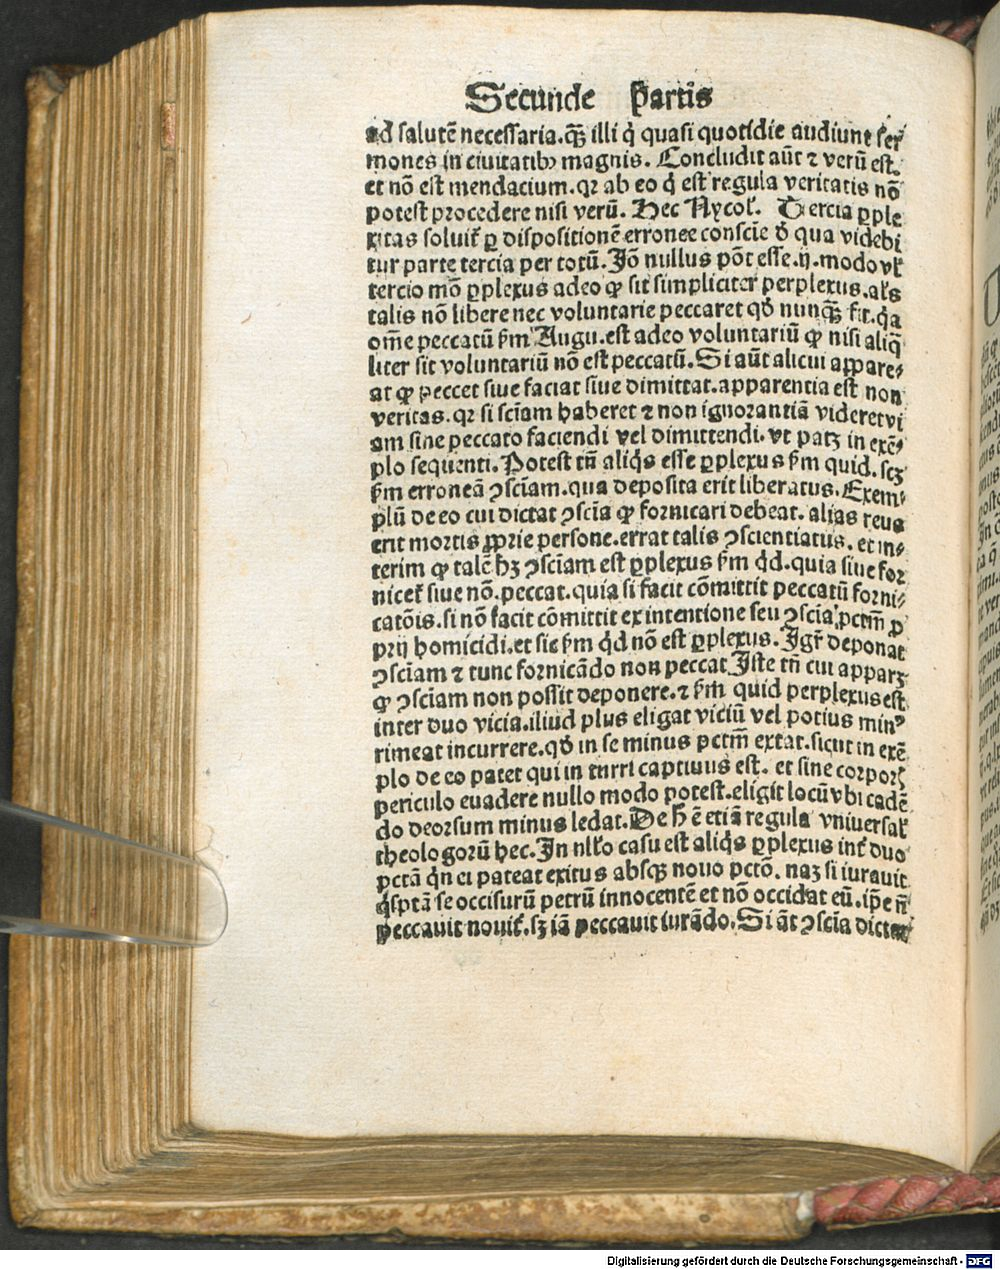 Secunde Partis
ad salutē necessaria. qꝫ illi q̇ quasi quotidie audiunt ser
mones in ciuitatibꝰ magnis. Concludit aūt ⁊ verū est.
et nō est mendacium. qꝛ ab eo q̇ est regula veritatis nō
potest procedere nisi verū. Hec Nycoł. Tercia ꝑple
xitas soluit̃ ꝑ dispositionē erronee conscīe đ qua videbi
tur parte tercia per totū. Jō nullus pōt esse. ij. modo vł
tercio mō ꝑplexus adeo ꝙ sit simpliciter perplexus. als
talis nō libere nec voluntarie peccaret qđ nunqꝫ fit. q̇a
om̄e peccatū ẜm Augu. est adeo voluntariū ꝙ nisi aliq̄
liter sit voluntariū nō est peccatū. Si aūt alicui appare⸗
at ꝙ peccet siue faciat siue dimittat. apparentia est non
veritas. qꝛ si scīam haberet ⁊ non ignorantiā videret vi
am sine peccato faciendi vel dimittendi. vt patꝫ in exē⸗
plo sequenti. Potest tñ aliq̇s esse ꝑplexus ẜm quid. scꝫ
ẜm erroneā ꝯsciam. qua deposita erit liberatus. Exem⸗
plū de eo cui dictat ꝯscia ꝙ fornicari debeat. alias reus
erit mortis ꝓprie persone. errat talis ꝯscientiatus. et in⸗
terim ꝙ talē hꝫ ꝯsciam est ꝑplexus ẜm qđ. quia siue for
nicet̃ siue nō. peccat. quia si facit cōmittit peccatū forni⸗
catōis. si nō facit cōmittit ex intentione seu ꝯscia pctm̄ ꝓ
prij homicidi. et sic ẜm qđ nō est ꝑplexus. Jgr̃ deponat
ꝯsciam ⁊ tunc fornicādo non peccat Jste tñ cui apparꝫ
ꝙ ꝯsciam non possit deponere. ⁊ ẜm quid perplexus est
inter duo vicia. illud plus eligat viciū vel potius minꝰ
timeat incurrere. qđ in se minus pctm̄ extat. sicut in exē
plo de eo patet qui in turri captiuus est. et sine corporꝭ
periculo euadere nullo modo potest. eligit locū vbi cadē
do deorsum minus ledat. De h̄ ē etiā regula vniuersał
theologorū hec. Jn nllo casu est aliq̇s ꝑplexus int̃ duo
pctā q̇n ei pateat exitus absqꝫ nouo pctō. naꝫ si iurauit
q̇sptā se occisurū petrū innocentē et nō occidat eū. ip̄e ñ
peccauit nouit̃. sꝫ iā peccauit iurādo. Si āt ꝯscia dictat
Digitalisierung gefördert durch die Deutsche Forschungsgemeinschaft - DFG